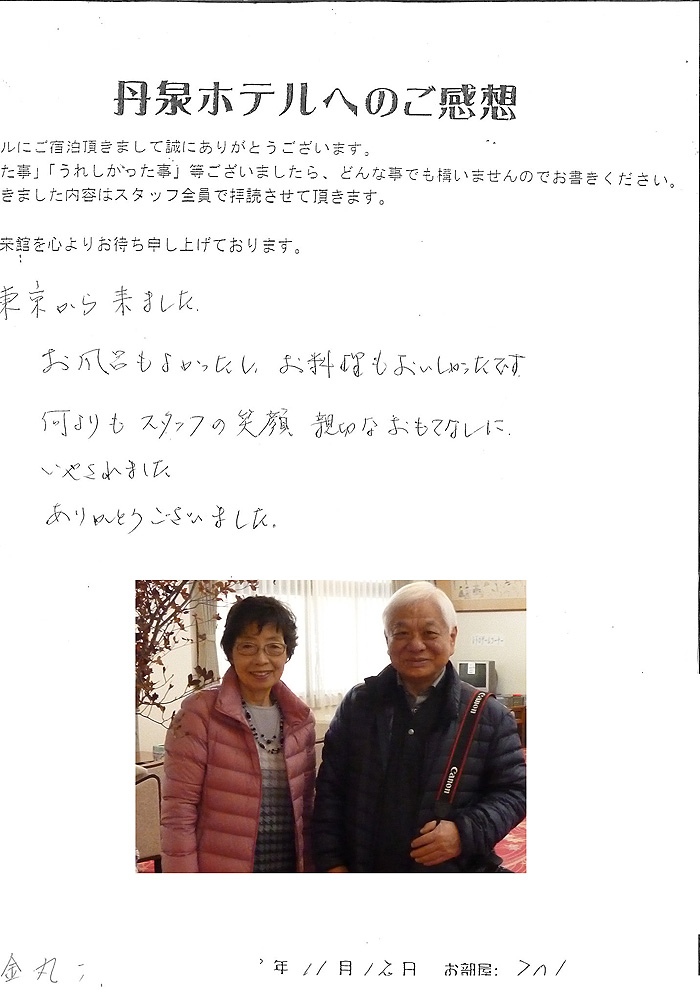 丹泉ホテルへのご感想
ルにご宿泊頂きまして誠にありがとうございます。
た事」「うれしかった事」等ございましたら、どんな事でも構いませんのでお書きください。
きました内容はスタッフ全員で拝読させて頂きます。
来館を心よりお待ち申し上げております。
東京から来ました.
お風呂もよかったし、お料理もおいしかったです
何よりもスタッフの笑顔 親切なおもてなしに.
いやされました
ありがとうございました。
Canon
Canon
金丸
年 11月 12日 お部屋: 701